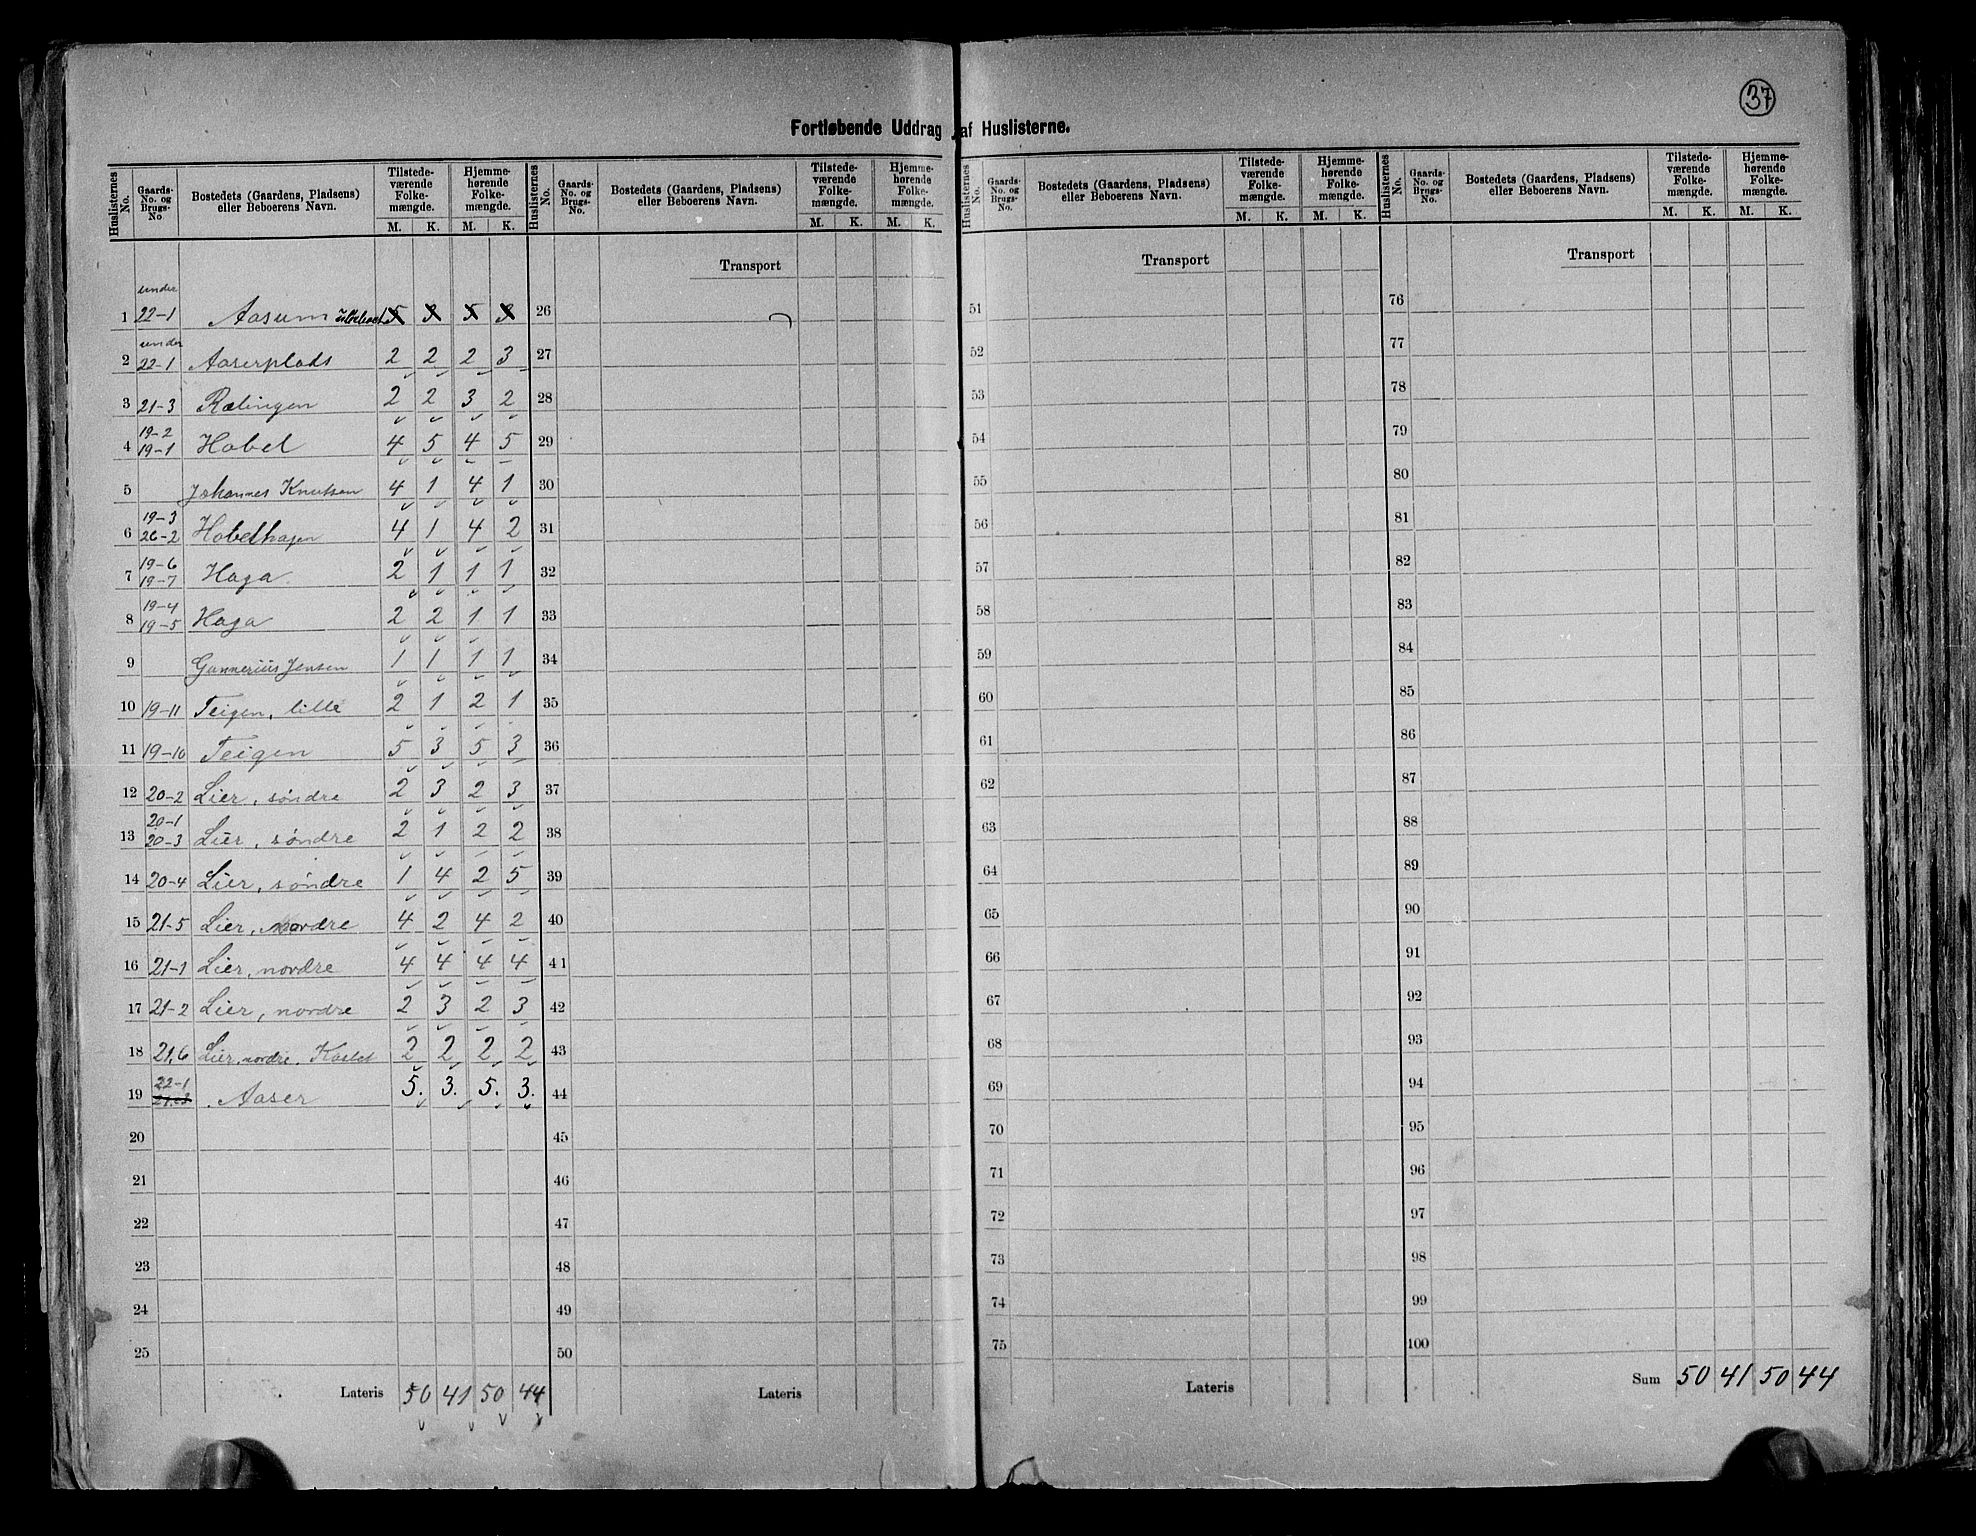 37
Fortløbende Uddrag af Huslisterne.
Huslisternes No. Gaards-No. og Brugs-No. Bostedets (Gaardens, Pladsens) eller Beboerens Navn. Tilstedeværende Folkemængde. M. K. Hjemmehørende Folkemængde. M. K.
Huslisternes No. Gaards-No. og Brugs-No. Bostedets (Gaardens, Pladsens) eller Beboerens Navn. Tilstedeværende Folkemængde. M. K. Hjemmehørende Folkemængde. M. K.
Huslisternes No. Gaards-No. og Brugs-No. Bostedets (Gaardens, Pladsens) eller Beboerens Navn. Tilstedeværende Folkemængde. M. K. Hjemmehørende Folkemængde. M. K.
Huslisternes No. Gaards-No. og Brugs-No. Bostedets (Gaardens, Pladsens) eller Beboerens Navn. Tilstedeværende Folkemængde. M. K. Hjemmehørende Folkemængde. M. K.
Transport Transport Transport
under
1 22-1 Aasum 5 3 5 3 26 51 76
under
2 22-1 Aaserplads 2 2 2 3 27 52 77
3 21-3 Rælingen 2 2 3 2 28 53 78
19-2
4 19-1 Hobel 4 5 4 5 29 54 79
5 Johannes Knutsen 4 1 4 1 30 55 80
19-3
6 26-2 Hobelhagen 4 1 4 2 31 56 81
19-6
7 19-7 Haga 2 1 1 1 32 57 82
19-4
8 19-5 Haga 2 2 1 1 33 58 83
9 Gunnerius Jensen 1 1 1 1 34 59 84
10 19-11 Teigen, lille 2 1 2 1 35 60 85
11 19-10 Teigen 5 3 5 3 36 61 86
12 20-2 Lier, søndre 2 3 2 3 37 62 87
20-1
13 20-3 Lier, søndre 2 1 2 2 38 63 88
14 20-4 Lier, søndre 1 4 2 5 39 64 89
15 21-5 Lier, nordre 4 2 4 2 40 65 90
16 21-1 Lier, nordre 4 4 4 4 41 66 91
17 21-2 Lier, nordre 2 3 2 3 42 67 92
18 21,6 Lier, nordre, Kastet 2 2 2 2 43 68 93
22-1
19 Aaser 5. 3. 5. 3. 44 69 94
20 45 70 95
21 46 71 96
22 47 72 97
23 48 73 98
24 49 74 99
25 50 75 100
Lateris 50 41 50 44 Lateris Lateris Sum 50 41 50 44